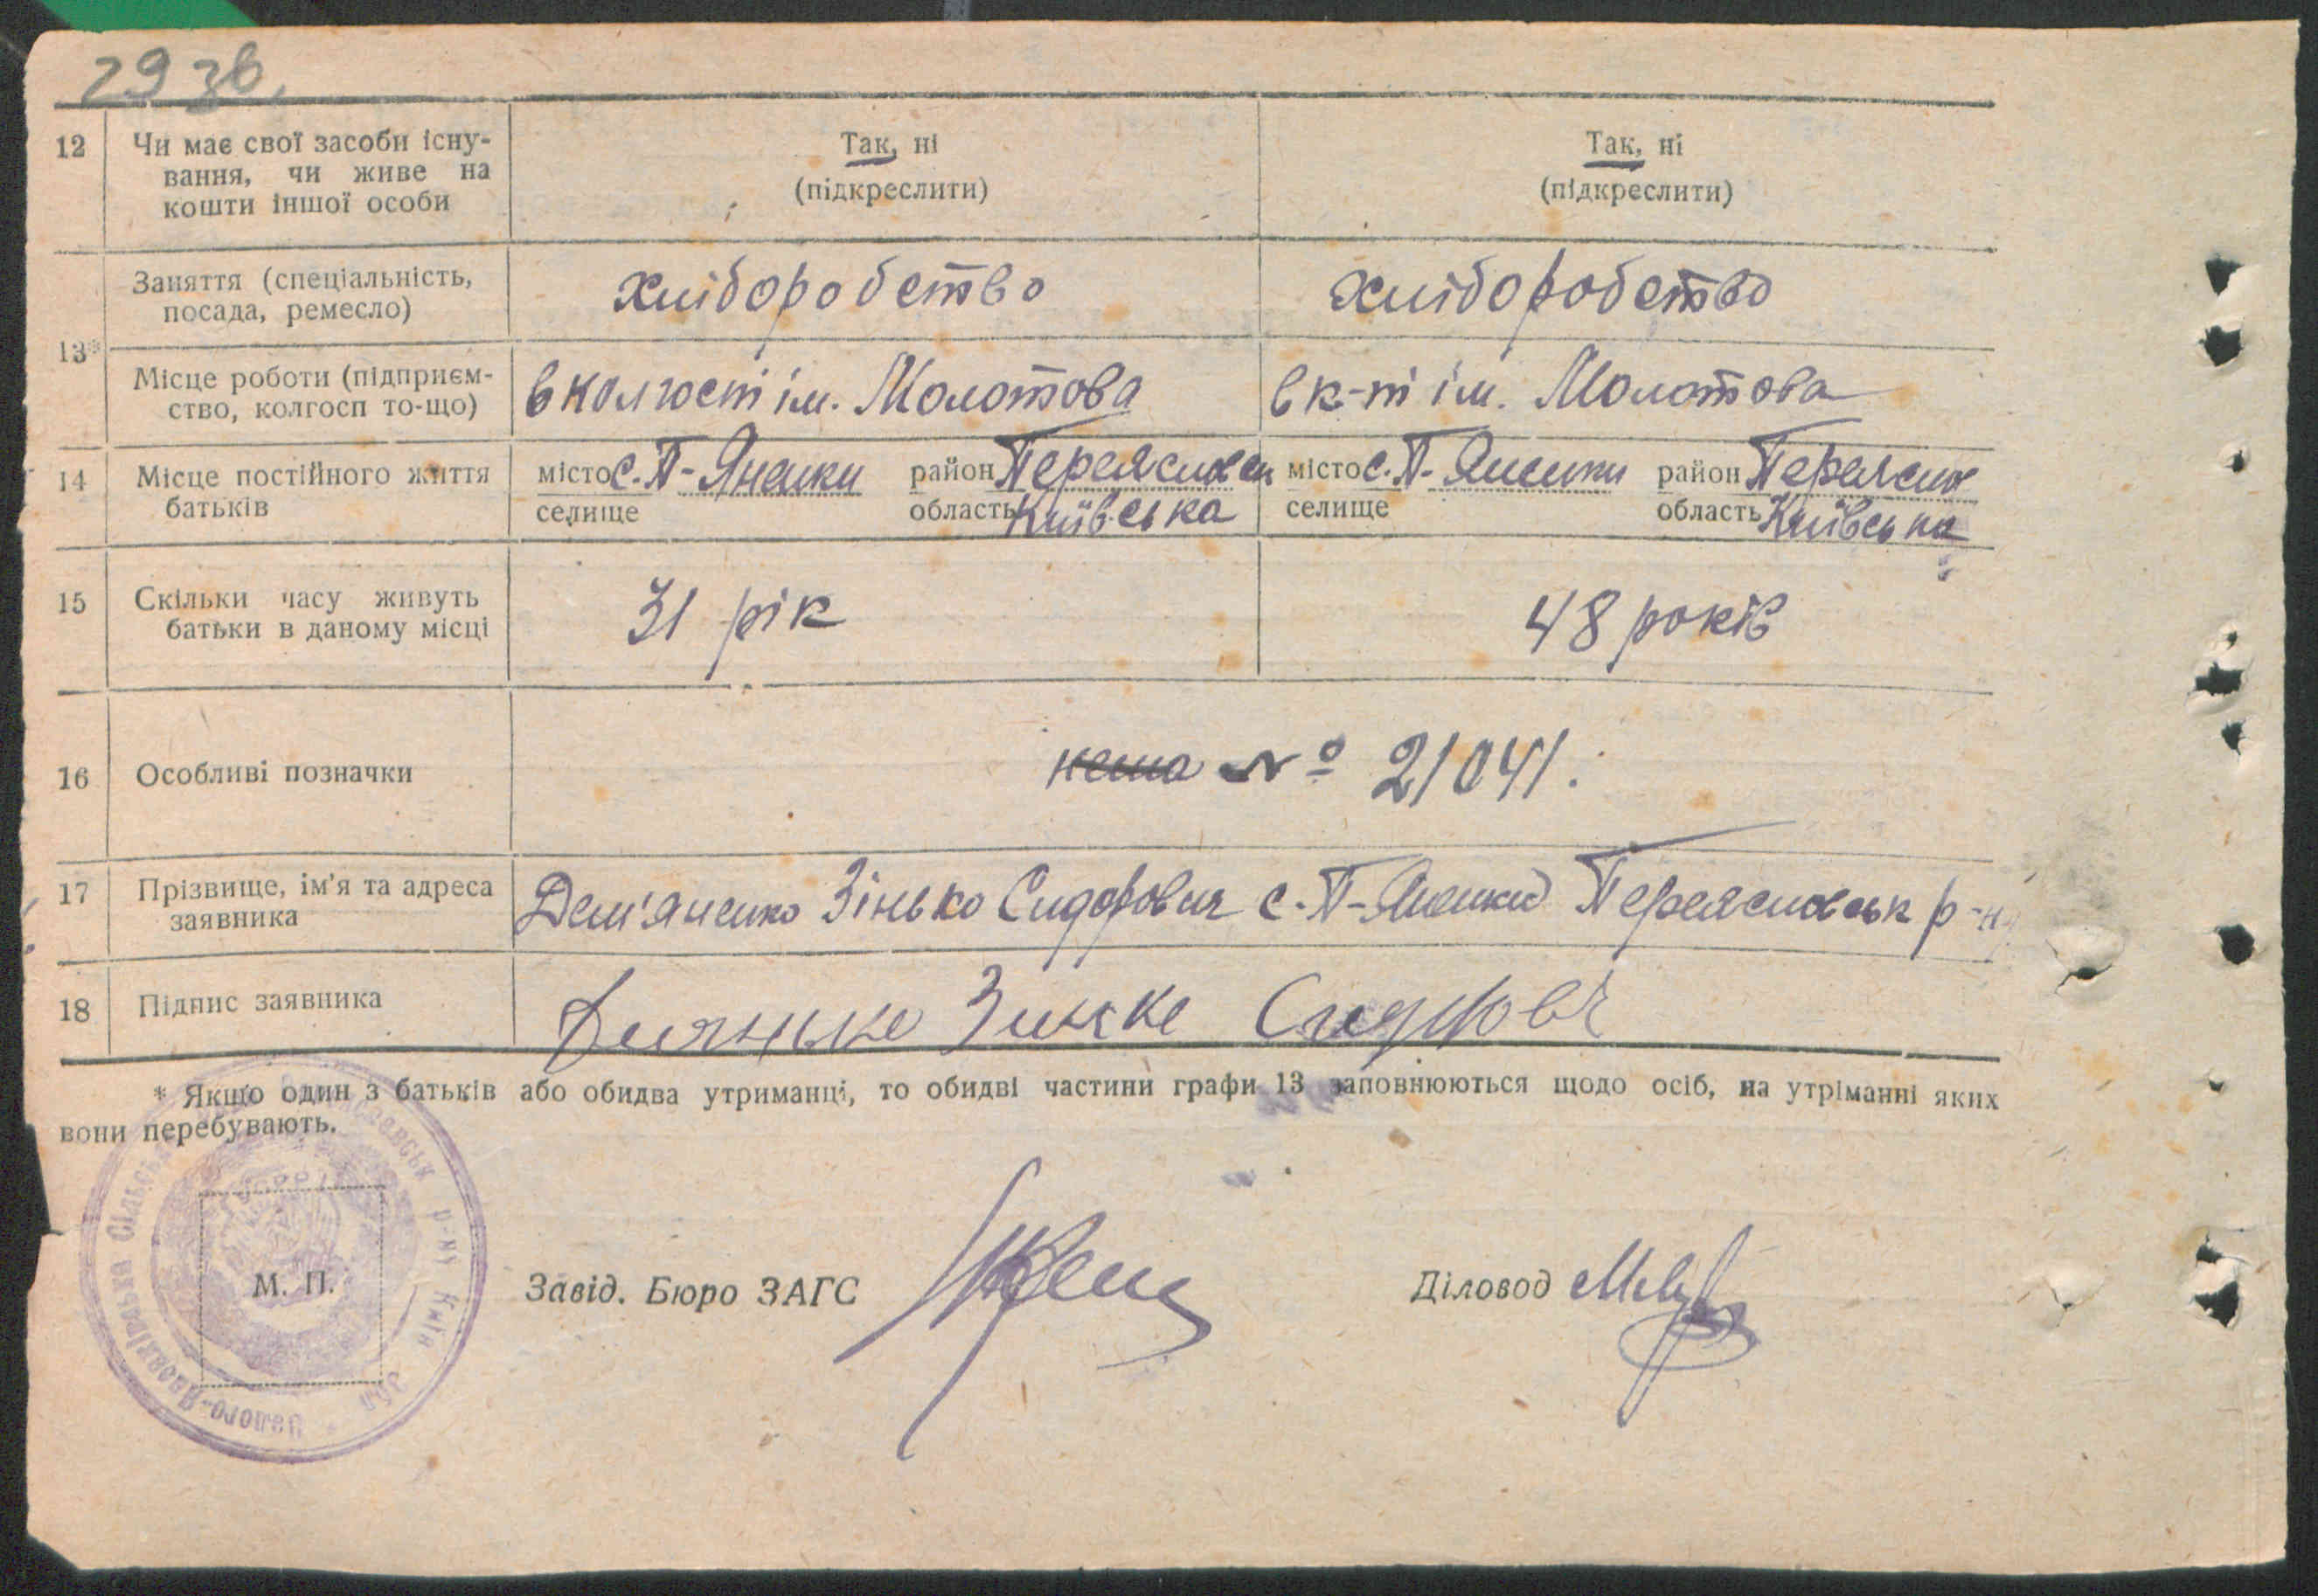 29 зв.
12 Чи має свої засоби існу-
вання, чи живе на
кошти іншої особи
Так, ні
(підкреслити)
Так, ні
(підкреслити)
13*
Заняття (спеціальність,
посада, ремесло)
хліборобство
хліборобство
Місце роботи (підприєм-
ство, колгосп то-що)
в колгоспі ім. Молотова
в к-пі ім. Молотова
14 Місце постійного життя
батьків
місто с. П-Яненки район Переяслов
селище область Київська
місто с. П-Яненки район Переяслов
селище область Київська
15 Скільки часу живуть
батьки в даному місці
31 рік
48 років
16 Особливі позначки
нема № 21041.
17 Прізвище, ім'я та адреса
заявника
Дем'яненко Зінько Сидорович с. П-Яненки Переясловськ р-н
18 Підпис заявника
* Якщо один з батьків або обидва утриманці, то обидві частини графи 13 заповнюються щодо осіб, на утріманні яких
вони перебувають.
М. П.
Завід. Бюро ЗАГС
Діловод